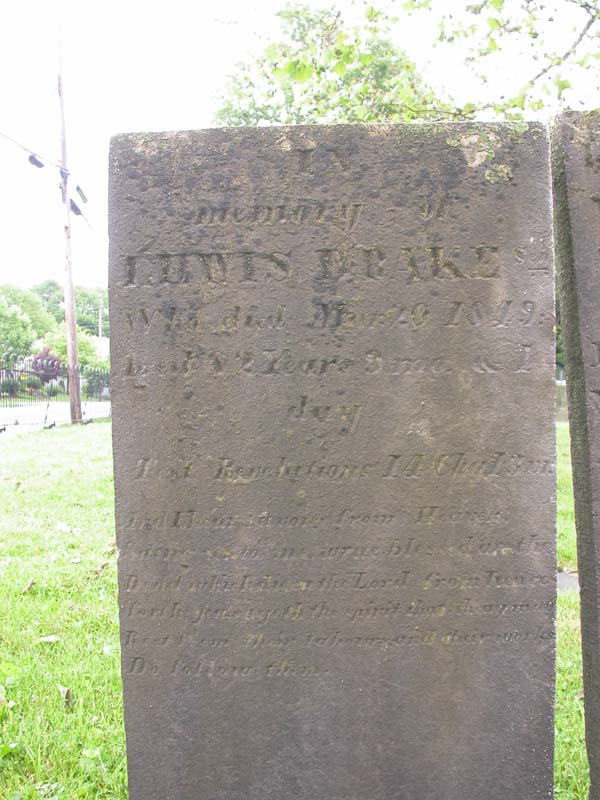 IN
memory of
LEWIS DRAKE Sr
Who died Mar 29 1849.
Aged 2 Years 3 mo. & 1
day
Text Revelations 14 Cha 13 vr
And I hear a voice from Heaven
saying unto me, write blessed are the
Dead which die in the Lord from hence
forth yea sayeth the spirit that they may
Rest from their labours and their works
Do follow them.